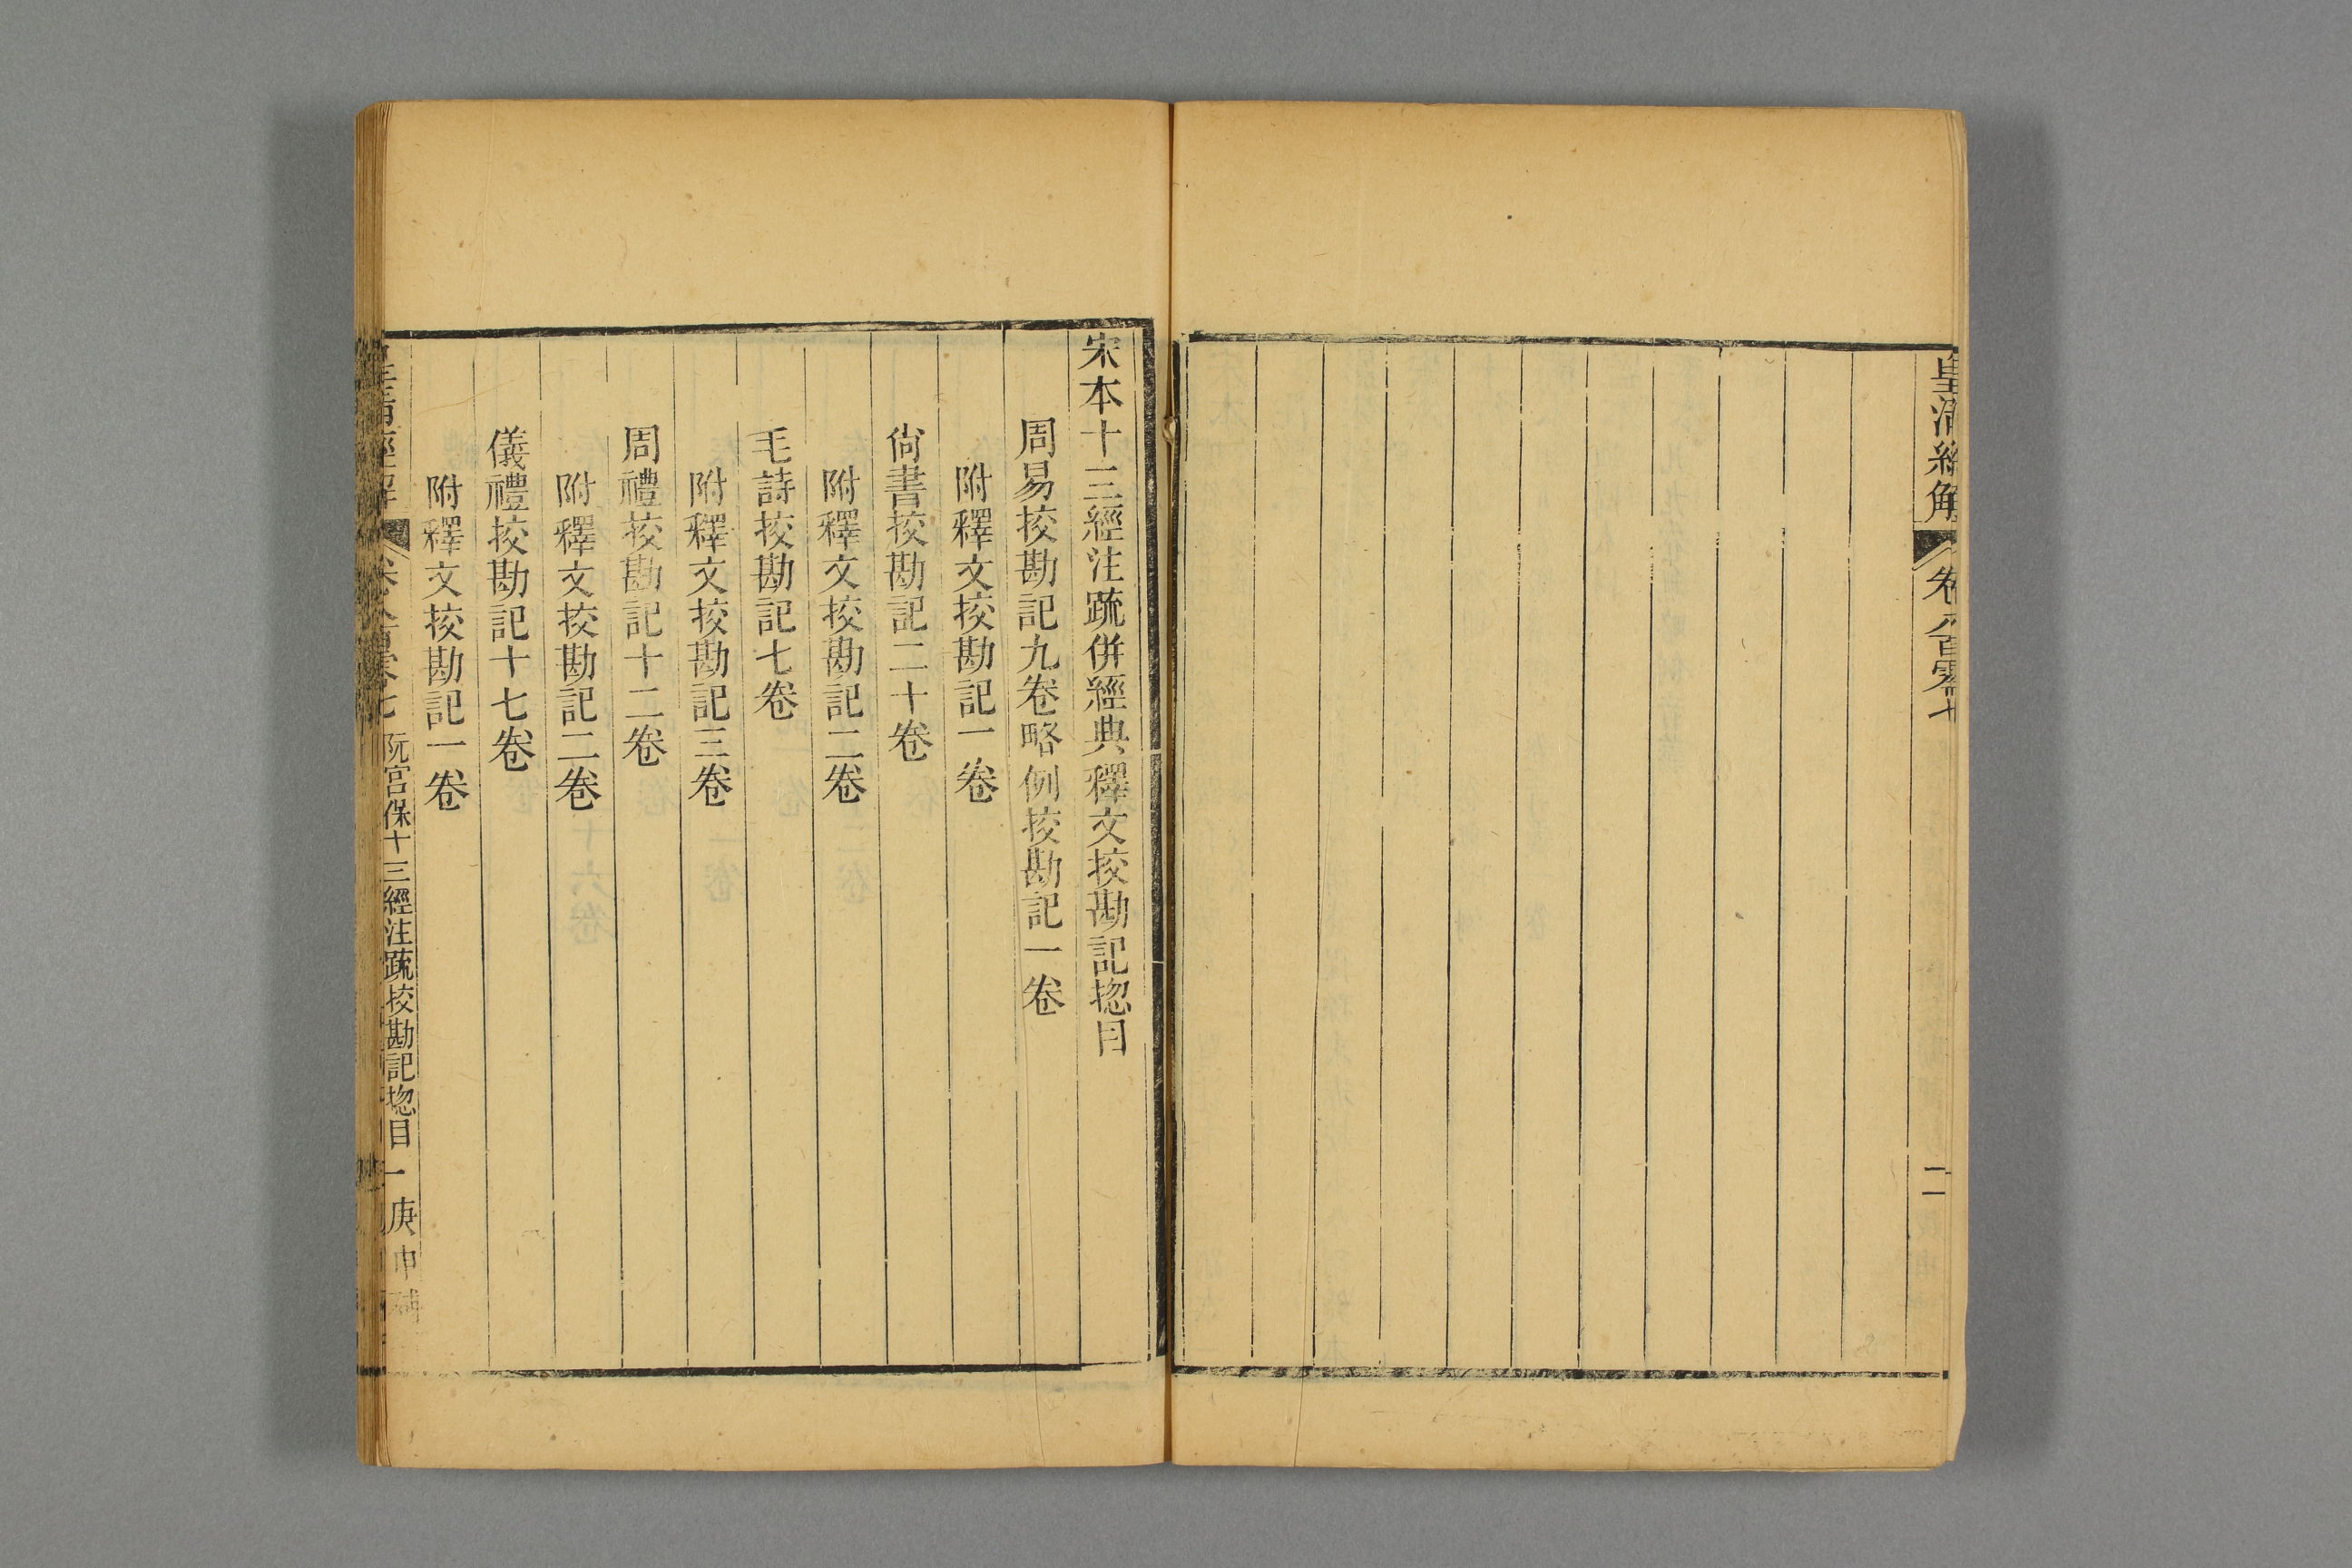 皇清經解 卷八百零七 二
宋本十三經注疏併經典釋文挍勘記揔目
周易挍勘記九卷略例挍勘記一卷
附釋文挍勘記一卷
尙書挍勘記二十卷
附釋文挍勘記二卷
毛詩挍勘記七卷
附釋文挍勘記三卷
周禮挍勘記十二卷
附釋文挍勘記二卷
儀禮挍勘記十七卷
附釋文挍勘記一卷
皇清經解 卷八百零七 阮宮保十三經注疏挍勘記揔目 一 庚申補